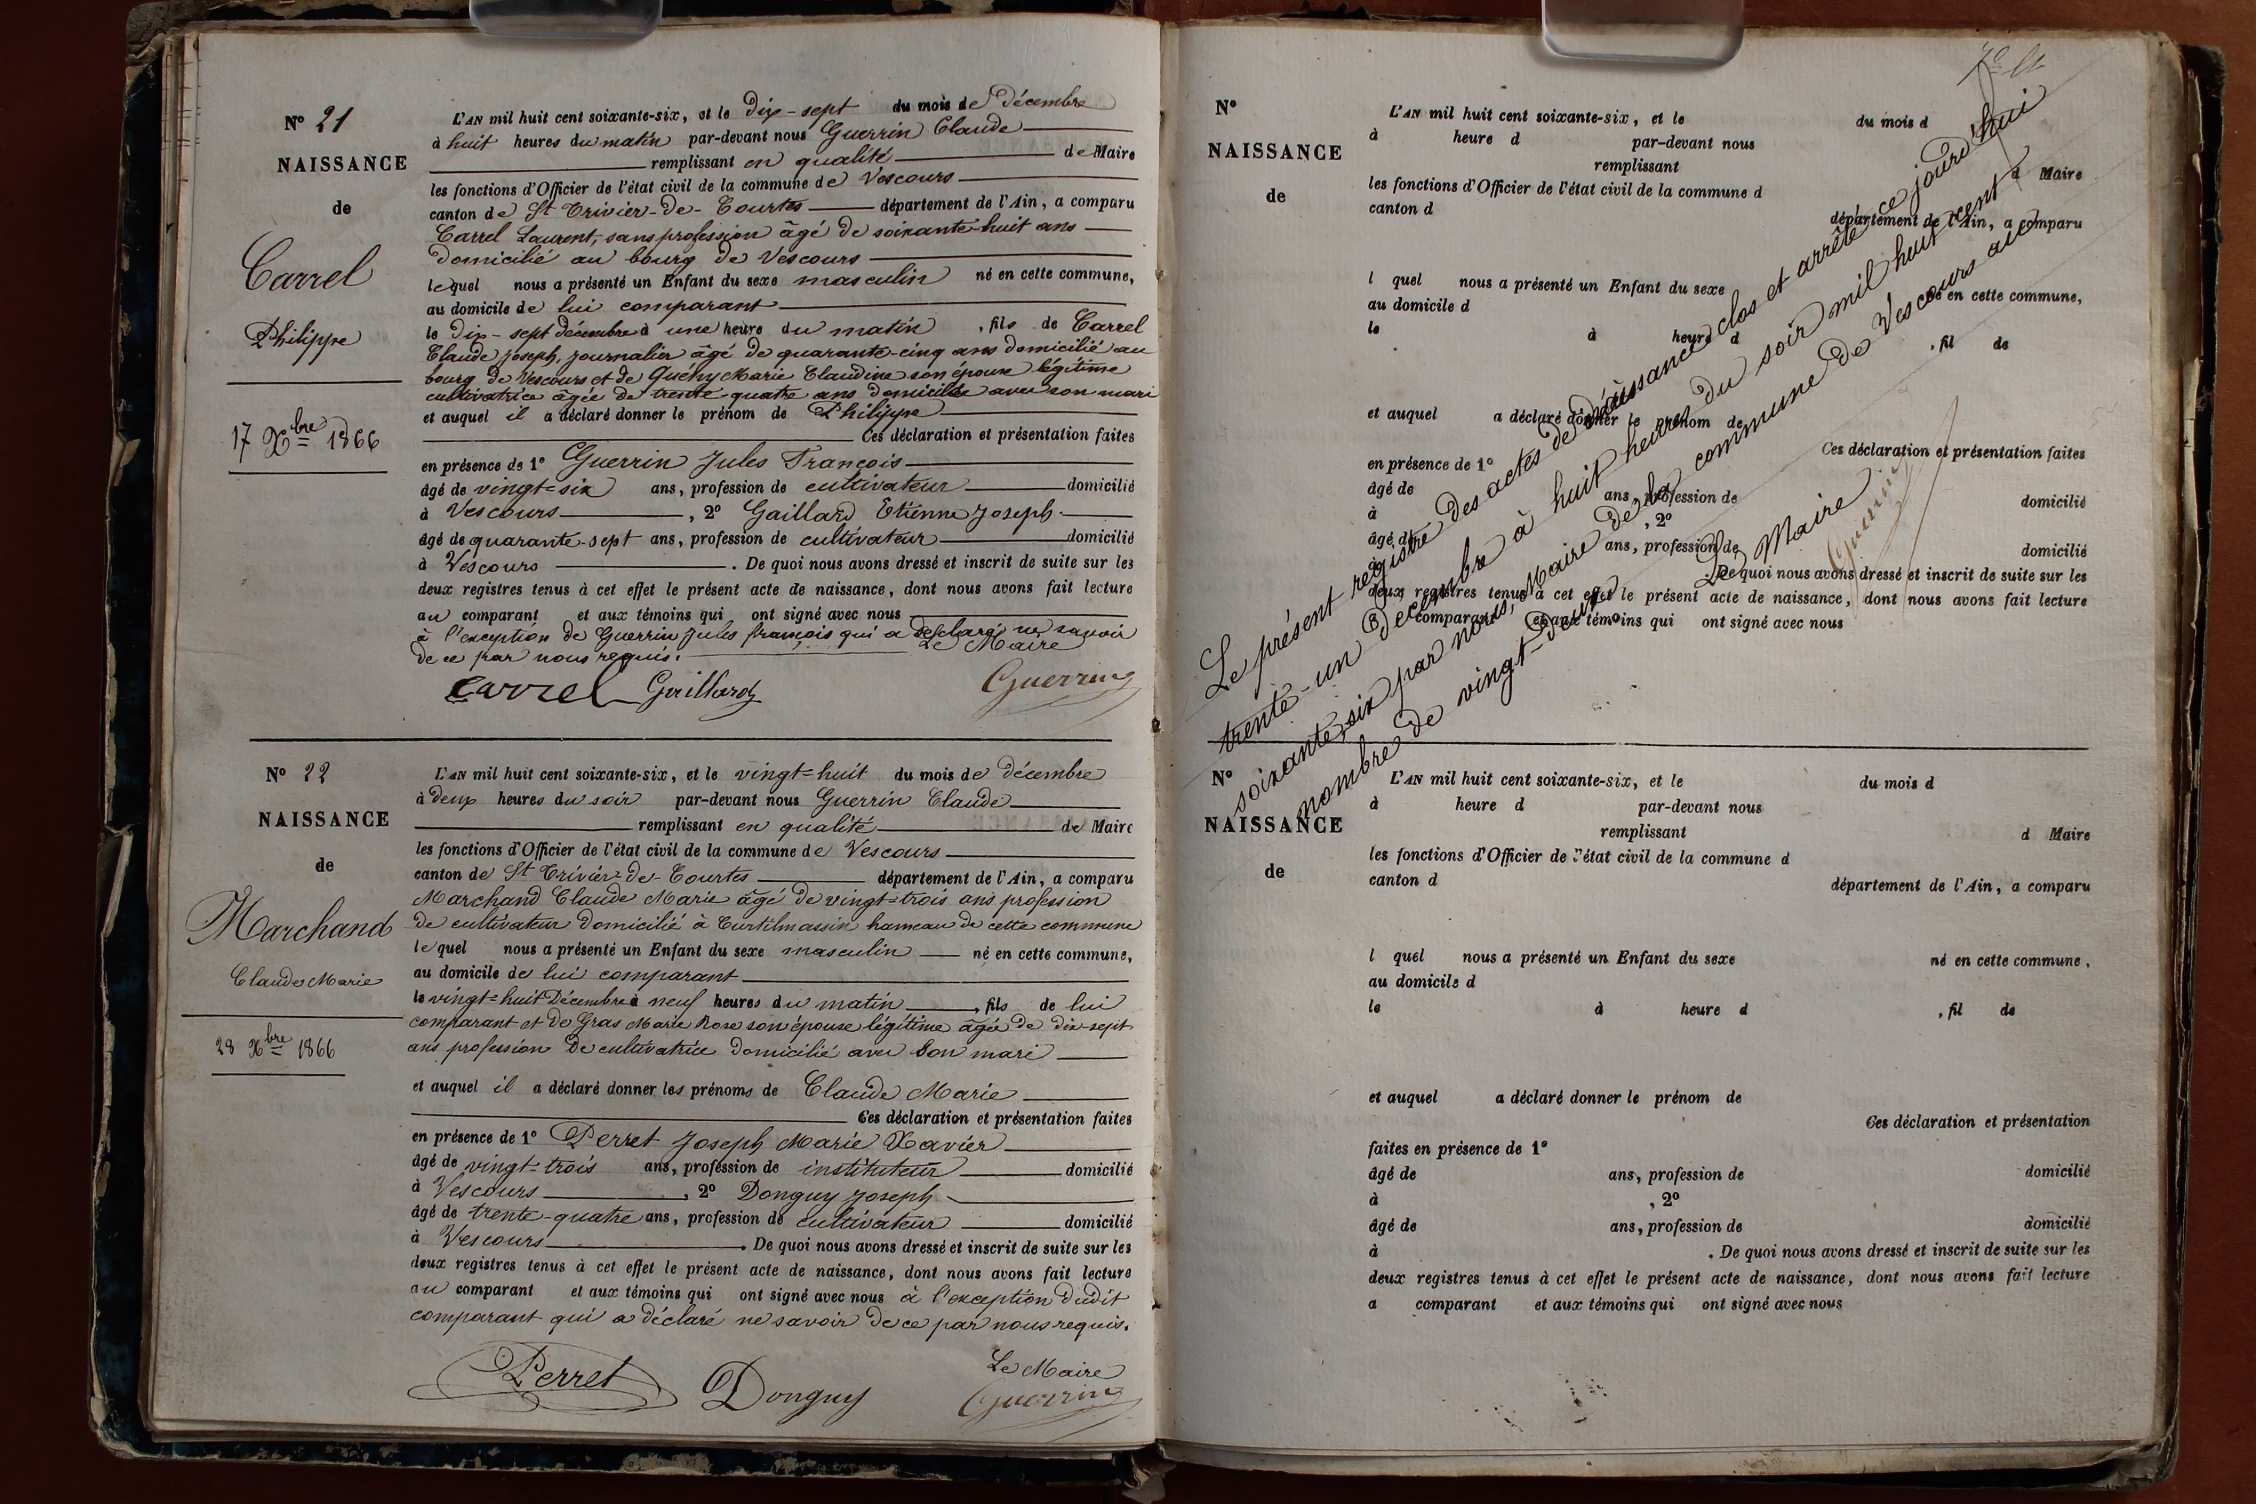 N° 21
NAISSANCE
de
Carrel
Philippe
17 Xbre 1866
L'AN mil huit cent soixante-six, et le Dix-sept du mois de Décembre
à huit heures du matin par-devant nous Guerrin Claude
remplissant en qualité de Maire
les fonctions d'Officier de l'état civil de la commune de Vescours
canton de St Trivier-de-Courtes département de l'Ain, a comparu
Carrel Laurent, sans profession âgé de soixante-huit ans
domicilié au bourg de Vescours
lequel nous a présenté un Enfant du sexe masculin né en cette commune,
au domicile de lui comparant
le dix-sept décembre à une heure du matin, fils de Carrel
Claude Joseph, journalier âgé de quarante-cinq ans domicilié au
bourg de Vescours et de Quchy Marie Claudine son épouse légitime
cultivatrice âgée de trente-quatre ans domiciliée avec son mari
et auquel il a déclaré donner le prénom de Philippe
Ces déclaration et présentation faites
en présence de 1° Guerrin Jules François
âgé de vingt-six ans, profession de cultivateur domicilié
à Vescours, 2° Gaillard Etienne Joseph
âgé de quarante-sept ans, profession de cultivateur domicilié
à Vescours. De quoi nous avons dressé et inscrit de suite sur les
deux registres tenus à cet effet le présent acte de naissance, dont nous avons fait lecture
au comparant et aux témoins qui ont signé avec nous
à l'exception de Guerrin Jules françois qui a déclaré ne savoir
de ce par nous requis. Le Maire
Carrel Gaillard Guerrin
N° 22
NAISSANCE
de
Marchand
Claude Marie
28 Xbre 1866
L'AN mil huit cent soixante-six, et le vingt-huit du mois de décembre
à deux heures du soir par-devant nous Guerrin Claude
remplissant en qualité de Maire
les fonctions d'Officier de l'état civil de la commune de Vescours
canton de St Trivier-de-Courtes département de l'Ain, a comparu
Marchand Claude Marie âgé de vingt-trois ans profession
de cultivateur domicilié à Curtilmassin hameau de cette commune
lequel nous a présenté un Enfant du sexe masculin né en cette commune,
au domicile de lui comparant
le vingt-huit Décembre à neuf heures du matin, fils de lui
comparant et de Gras Marie Rose son épouse légitime âgée de dix-sept
ans profession de cultivatrice domicilié avec son mari
et auquel il a déclaré donner les prénoms de Claude Marie
Ces déclaration et présentation faites
en présence de 1° Perret Joseph Marie Xavier
âgé de vingt-trois ans, profession de instituteur domicilié
à Vescours, 2° Donguy Joseph
âgé de trente-quatre ans, profession de cultivateur domicilié
à Vescours. De quoi nous avons dressé et inscrit de suite sur les
deux registres tenus à cet effet le présent acte de naissance, dont nous avons fait lecture
au comparant et aux témoins qui ont signé avec nous à l'exception dudit
comparant qui a déclaré ne savoir de ce par nous requis.
Le Maire
Perret Donguy Guerrin
N°
NAISSANCE
de
L'AN mil huit cent soixante-six, et le du mois d
à heure d par-devant nous
remplissant d Maire
les fonctions d'Officier de l'état civil de la commune d
canton d département de l'Ain, a comparu
l quel nous a présenté un Enfant du sexe né en cette commune,
au domicile d
le à heure d , fil de
et auquel a déclaré donner le prénom de
Ces déclaration et présentation faites
en présence de 1°
âgé de ans, profession de domicilié
à , 2°
âgé de ans, profession de domicilié
à . De quoi nous avons dressé et inscrit de suite sur les
deux registres tenus à cet effet le présent acte de naissance, dont nous avons fait lecture
a comparant et aux témoins qui ont signé avec nous
Le présent registre des actes de naissance clos et arrêté ce jourd'hui
trente-un décembre à huit heures du soir mil huit cent
soixante-six par nous, Maire de la commune de Vescours au
nombre de vingt-deux
Le Maire
Guerrin
N°
NAISSANCE
de
L'AN mil huit cent soixante-six, et le du mois d
à heure d par-devant nous
remplissant d Maire
les fonctions d'Officier de l'état civil de la commune d
canton d département de l'Ain, a comparu
l quel nous a présenté un Enfant du sexe né en cette commune,
au domicile d
le à heure d , fil de
et auquel a déclaré donner le prénom de
Ces déclaration et présentation
faites en présence de 1°
âgé de ans, profession de domicilié
à , 2°
âgé de ans, profession de domicilié
à . De quoi nous avons dressé et inscrit de suite sur les
deux registres tenus à cet effet le présent acte de naissance, dont nous avons fait lecture
a comparant et aux témoins qui ont signé avec nous